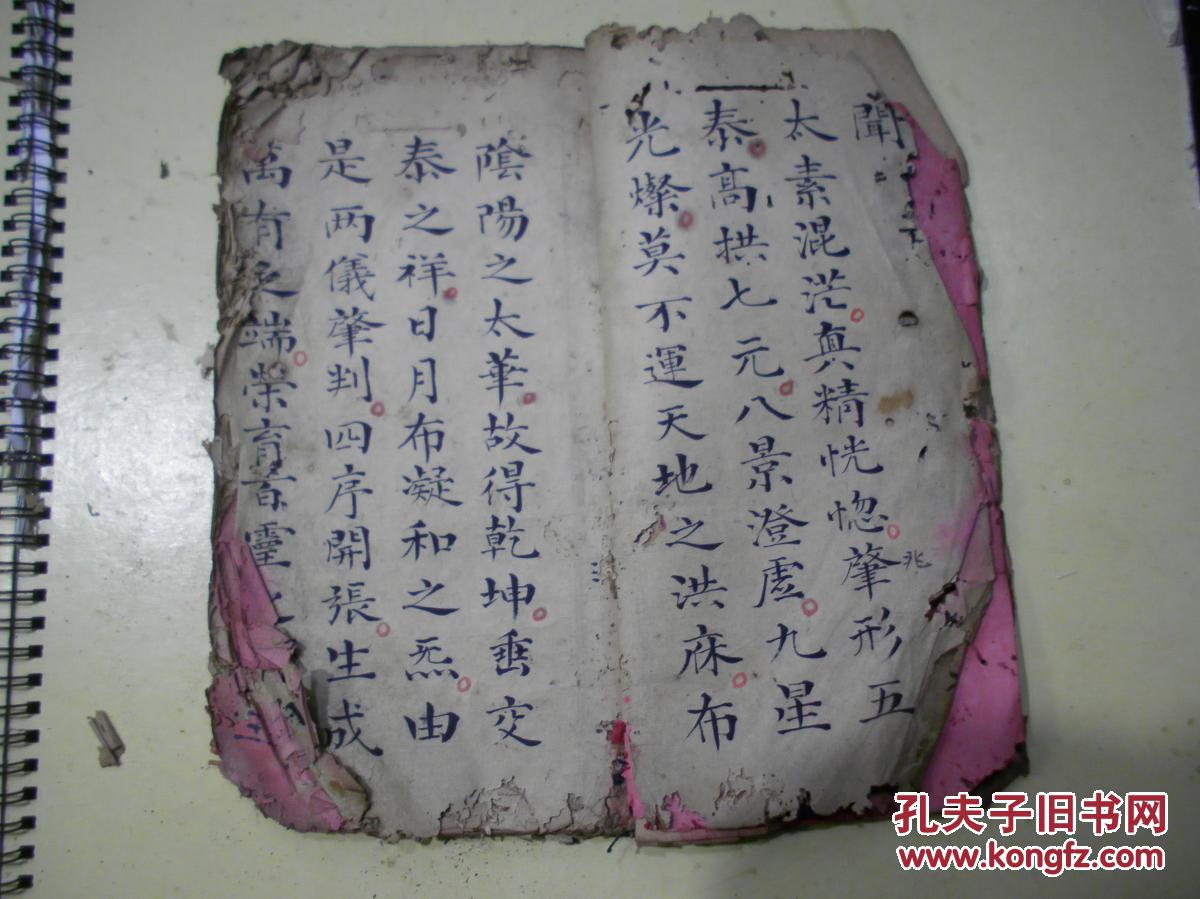 聞
太素混茫真精恍惚肇形五
兆
泰髙拱七元八景澄虛九星
光燦莫不運天地之洪庥布
陰陽之太華故得乾坤垂交
泰之祥日月布凝和之炁由
是两儀肇判四序開張生成
萬有之端榮育靈
孔夫子旧书网
www.kongfz.com